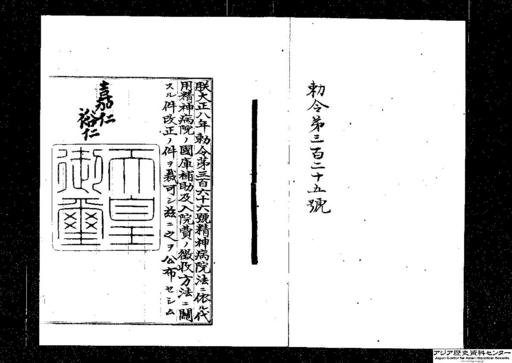 勅令第三百二十五號
朕大正八年勅令第三百六十六號精神病院法ニ依ル代
用精神病院ノ國庫補助及入院費ノ徴收方法ニ關
スル件改正ノ件ヲ裁可シ茲ニ之ヲ公布セシム
嘉仁
裕仁
天皇
御璽
アジア歴史資料センター
Japan Center for Asian Historical Records